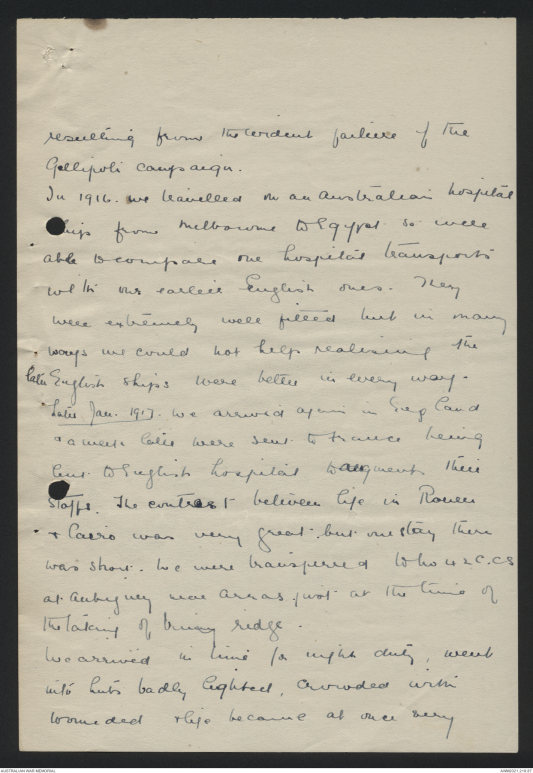 resulting from the evident failure of the
Gallipoli campaign.
In 1916. we travelled on an Australian hospital
ships from Melbourne to Egypt so were
able to compare our hospital transports
with our earlier English ones. They
were extremely well fitted but in many
ways we could not help realising the
later English ships were better in every way.
Late Jan. 1917. we arrived again in England
& a week later were sent to France being
lent to English hospital to augment their
staffs. The contrast between life in Rouen
& Cairo was very great. but our stay there
was short. We were transferred to No 42 C.CS
at Aubigney near Arras just at the time of
the taking of Vimy ridge.
We arrived in time for night duty, went
into huts badly lighted, crowded with
wounded & life became at once very
AUSTRALIAN WAR MEMORIAL